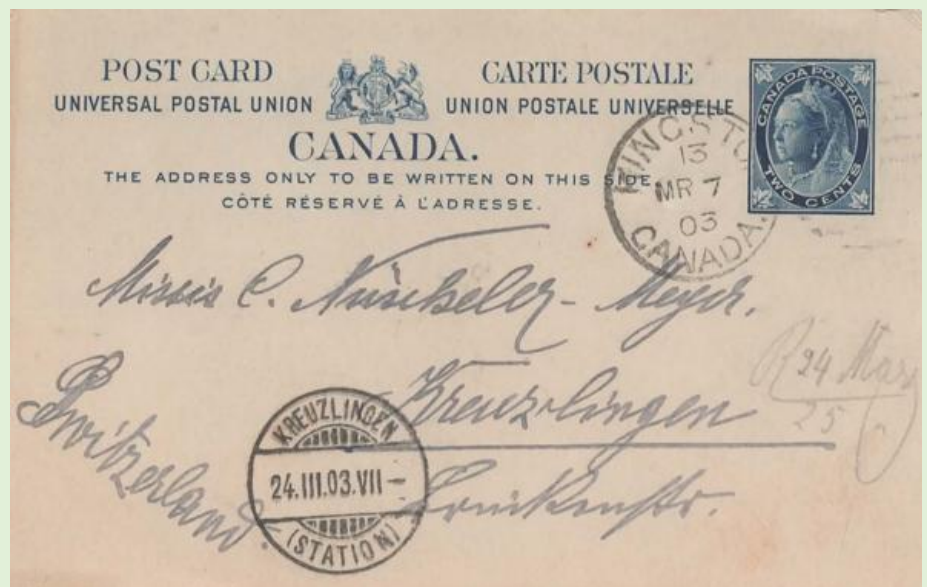 POST CARD CARTE POSTALE
UNIVERSAL POSTAL UNION UNION POSTALE UNIVERSELLE
CANADA.
THE ADDRESS ONLY TO BE WRITTEN ON THIS SIDE
CÔTÉ RÉSERVÉ À L'ADRESSE.
CANADA POSTAGE
TWO CENTS
KINGSTO
13
MR 7
03
CANADA.
Missis C. Nüscheler-Meyer.
Kreuzlingen
Switzerland.
24 Marz
25
KREUZLINGEN
24.III.03.VII-
(STATION)